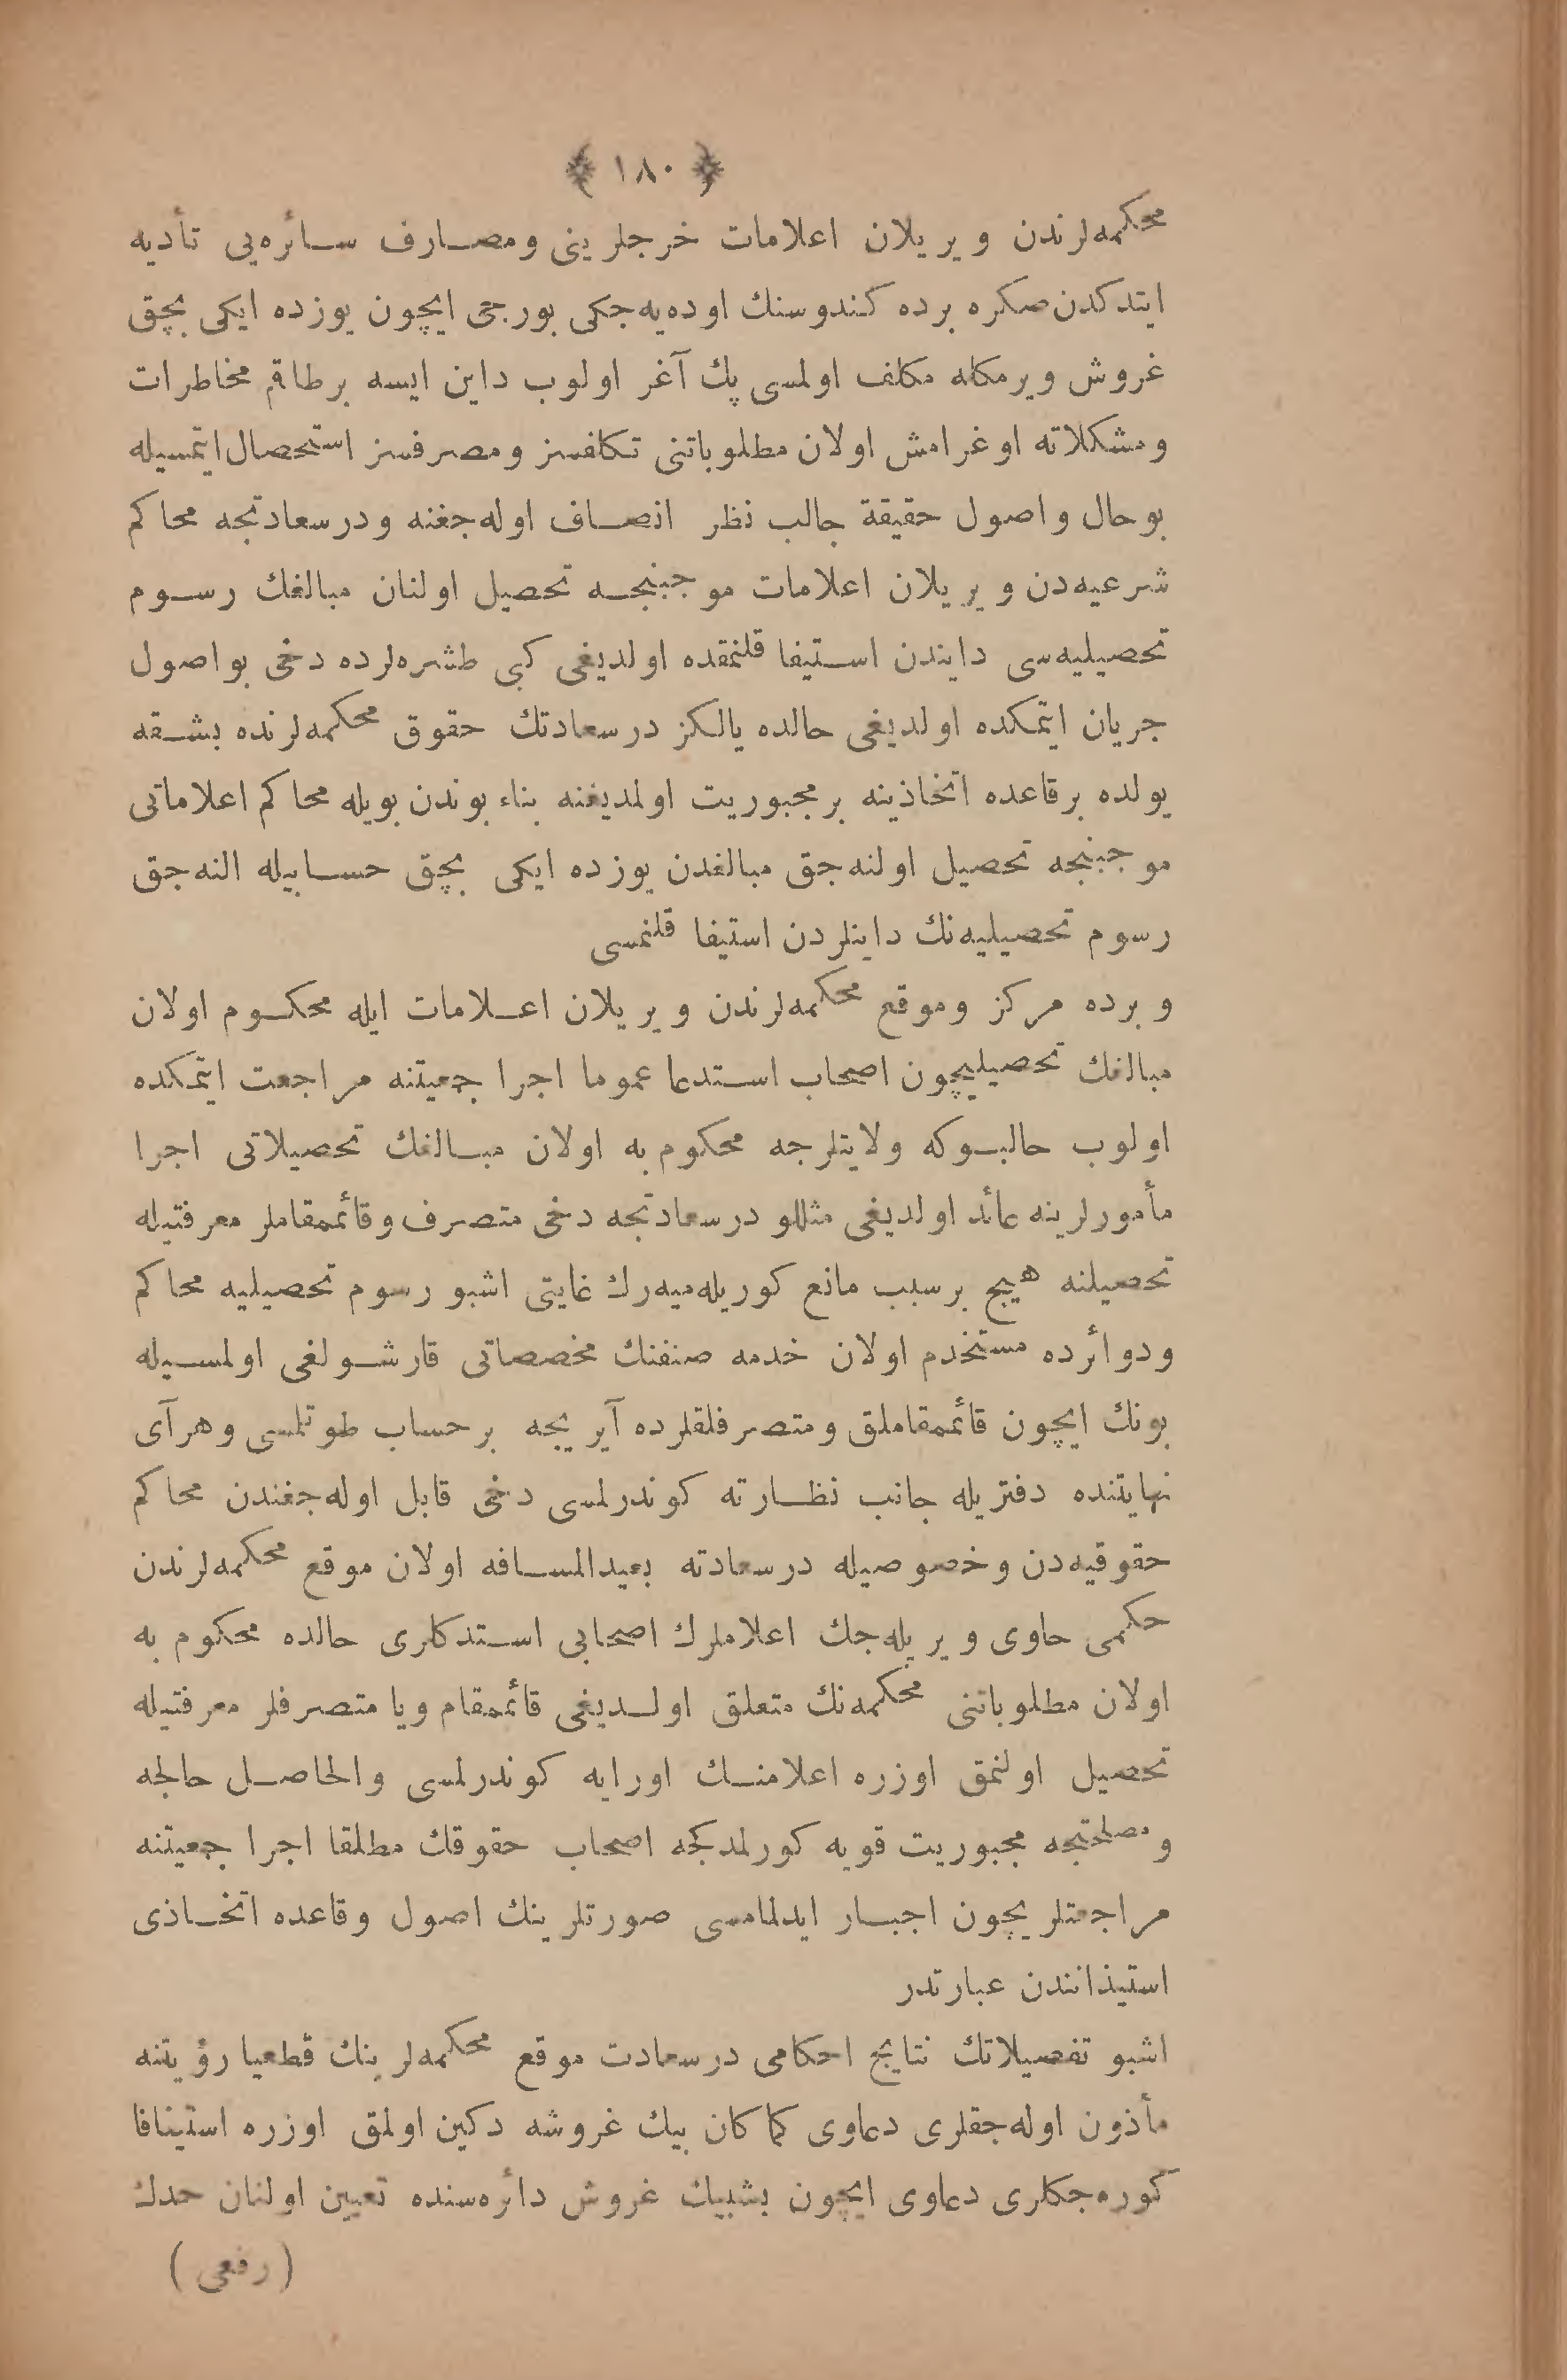 ﴿ ١٨٠ ﴾
محكمه‌لرندن ويريلان اعلامات خرجلرينى ومصارف سائره‌يى تأديه
ايتدكدن صكره برده كندوسنك اوده‌يه‌جكى بورجى ايچون يوزده ايكى بچق
غروش ويرمكله مكلف اولمسى پك آغر اولوب داين ايسه برطاقم مخاطرات
ومشكلاته اوغرامش اولان مطلوباتنى تكلفسز ومصرفسز استحصال ايتمسيله
بوحال واصول حقيقة جالب نظر انصاف اوله‌جغنه ودرسعادتجه محاكم
شرعيه‌دن ويريلان اعلامات موجبنجه تحصيل اولنان مبالغك رسوم
تحصيليه‌سى دايندن استيفا قلنمقده اولديغى كبى طشره‌لرده دخى بواصول
جريان ايتمكده اولديغى حالده يالكز درسعادتك حقوق محكمه‌لرنده بشقه
يولده برقاعده اتخاذينه برمجبوريت اولمديغنه بناء بوندن بويله محاكم اعلاماتى
موجبنجه تحصيل اولنه‌جق مبالغدن يوزده ايكى بچق حسابيله النه‌جق
رسوم تحصيليه‌نك داينلردن استيفا قلنمسى
وبرده مركز وموقع محكمه‌لرندن ويريلان اعلامات ايله محكوم اولان
مبالغك تحصيليچون اصحاب استدعا عموما اجرا جمعيتنه مراجعت ايتمكده
اولوب حالبوكه ولايتلرجه محكوم به اولان مبالغك تحصيلاتى اجرا
مأمورلرينه عائد اولديغى مثللو درسعادتجه دخى متصرف وقائممقاملر معرفتيله
تحصيلنه هيچ برسبب مانع كوريله‌ميه‌رك غايتى اشبو رسوم تحصيليه محاكم
ودوائرده مستخدم اولان خدمه صنفنك مخصصاتى قارشولغى اولمسيله
بونك ايچون قائممقاملق ومتصرفلقلرده آيريجه برحساب طوتلمسى وهرآى
نهايتنده دفتريله جانب نظارته كوندرلمسى دخى قابل اوله‌جغندن محاكم
حقوقيه‌دن وخصوصيله درسعادته بعيدالمسافه اولان موقع محكمه‌لرندن
حكمى حاوى ويريله‌جك اعلاملرك اصحابى استدكلرى حالده محكوم به
اولان مطلوباتنى محكمه‌نك متعلق اولديغى قائممقام ويا متصرفلر معرفتيله
تحصيل اولنمق اوزره اعلامنك اورايه كوندرلمسى والحاصل حالجه
ومصلحتجه مجبوريت قويه كورلمدكجه اصحاب حقوقك مطلقا اجرا جمعيتنه
مراجعتلريچون اجبار ايدلمامسى صورتلرينك اصول وقاعده اتخاذى
استيذانندن عبارتدر
اشبو تفصيلاتك نتايج احكامى درسعادت موقع محكمه‌لرينك قطعيا رؤيتنه
مأذون اوله‌جقلرى دعاوى كماكان بيك غروشه دكين اولمق اوزره استينافا
كوره‌جكلرى دعاوى ايچون بشبيك غروش دائره‌سنده تعيين اولنان حدك
( رفعى )